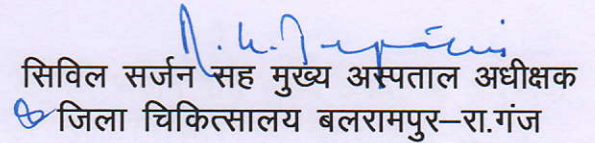 सिविल सर्जन सह मुख्य अस्पताल अधीक्षक
जिला चिकित्सालय बलरामपुर–रा.गंज